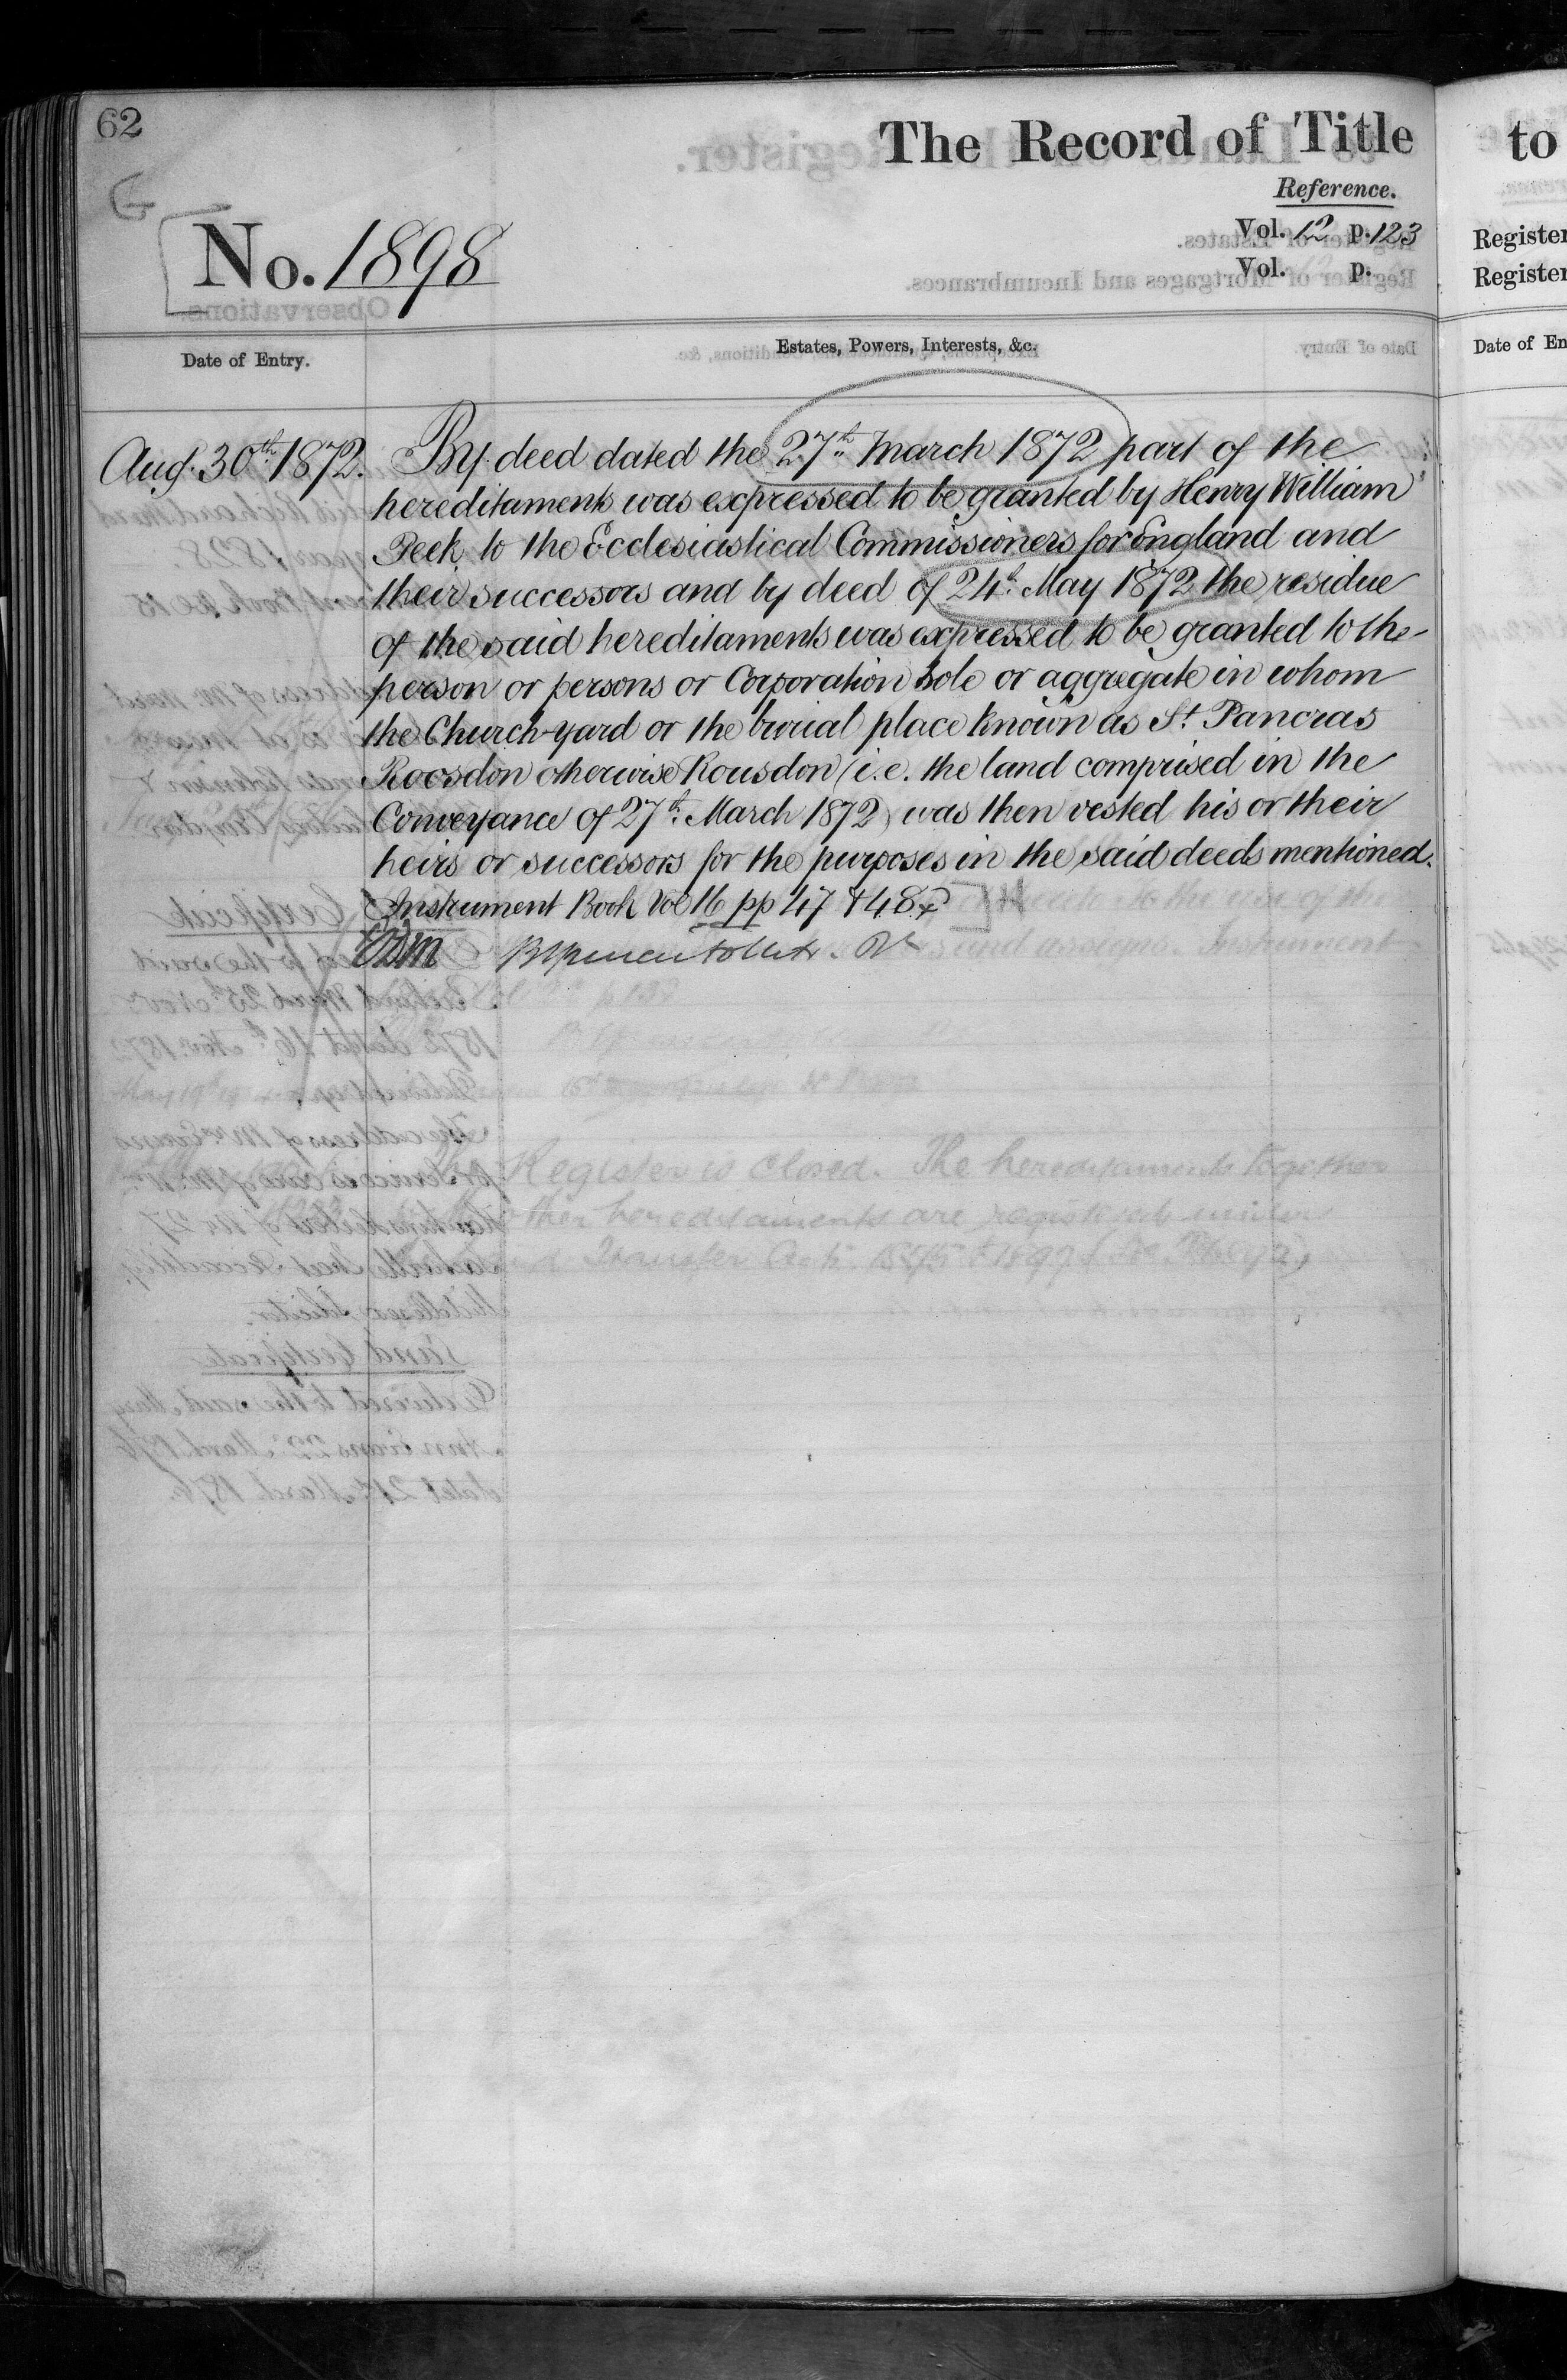 62
The Record of Title
Reference.
G
No. 1898
Vol. 12 p. 123
Vol. p.
Date of Entry.
Estates, Powers, Interests, &c.
Aug. 30th 1872.
By deed dated the 27th March 1872 part of the
hereditaments was expressed to be granted by Henry William
Peek to the Ecclesiastical Commissioners for England and
their successors and by deed of 24th May 1872 the residue
of the said hereditaments was expressed to be granted to the
person or persons or Corporation sole or aggregate in whom
the Church-yard or the burial place known as St. Pancras
Roosdon otherwise Rousdon (i.e. the land comprised in the
Conveyance of 27th March 1872) was then vested his or their
heirs or successors for the purposes in the said deeds mentioned.
Instrument Book Vol 16 pp 47 & 48
Register is closed. The hereditaments together
other hereditaments are registered under
Transfer Acts 1875 & 1897
to
Register
Register
Date of En